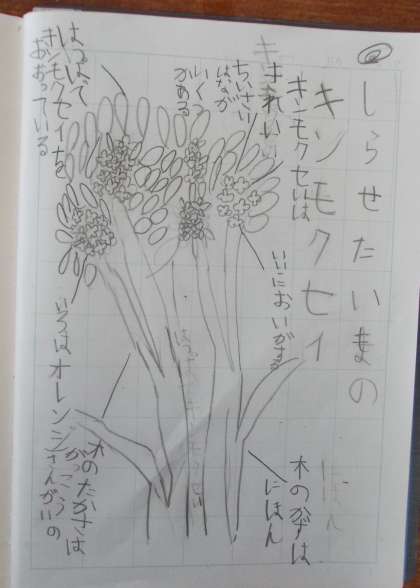 しらせたいもの
キンモクセイ
キンモクセイは
きれい
ちいさい
はなが
いくつ
かある
はっぱで
キンモクセイを
おおっている
いいにおいがする
いろはオレンジ
木のたかさは
がっこう
さんがいの
木のかずは
にほん